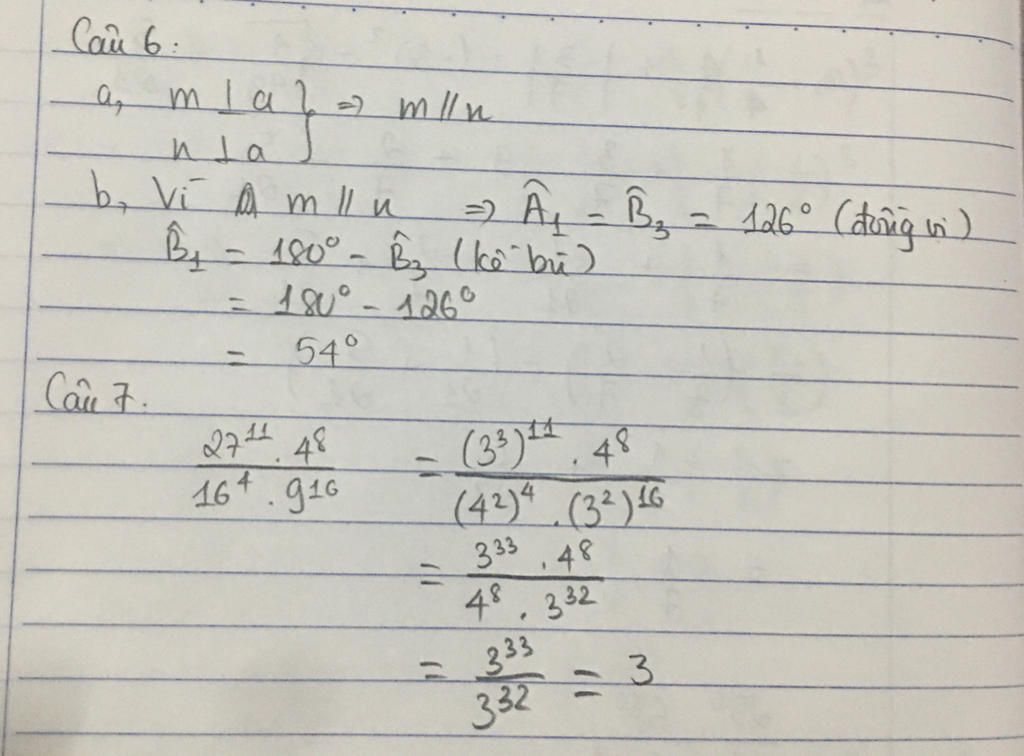 Câu 6:
a, m ⊥ a } ⇒ m // n
n ⊥ a
b, Vì m // n ⇒ Â₁ = B̂₃ = 126° (đồng vị)
B̂₁ = 180° - B̂₃ (kề bù)
= 180° - 126°
= 54°
Câu 7.
27¹¹ . 4⁸ / 16⁴ . 9¹⁶ = (3³)¹¹ . 4⁸ / (4²)⁴ . (3²)¹⁶
= 3³³ . 4⁸ / 4⁸ . 3³²
= 3³³ / 3³² = 3